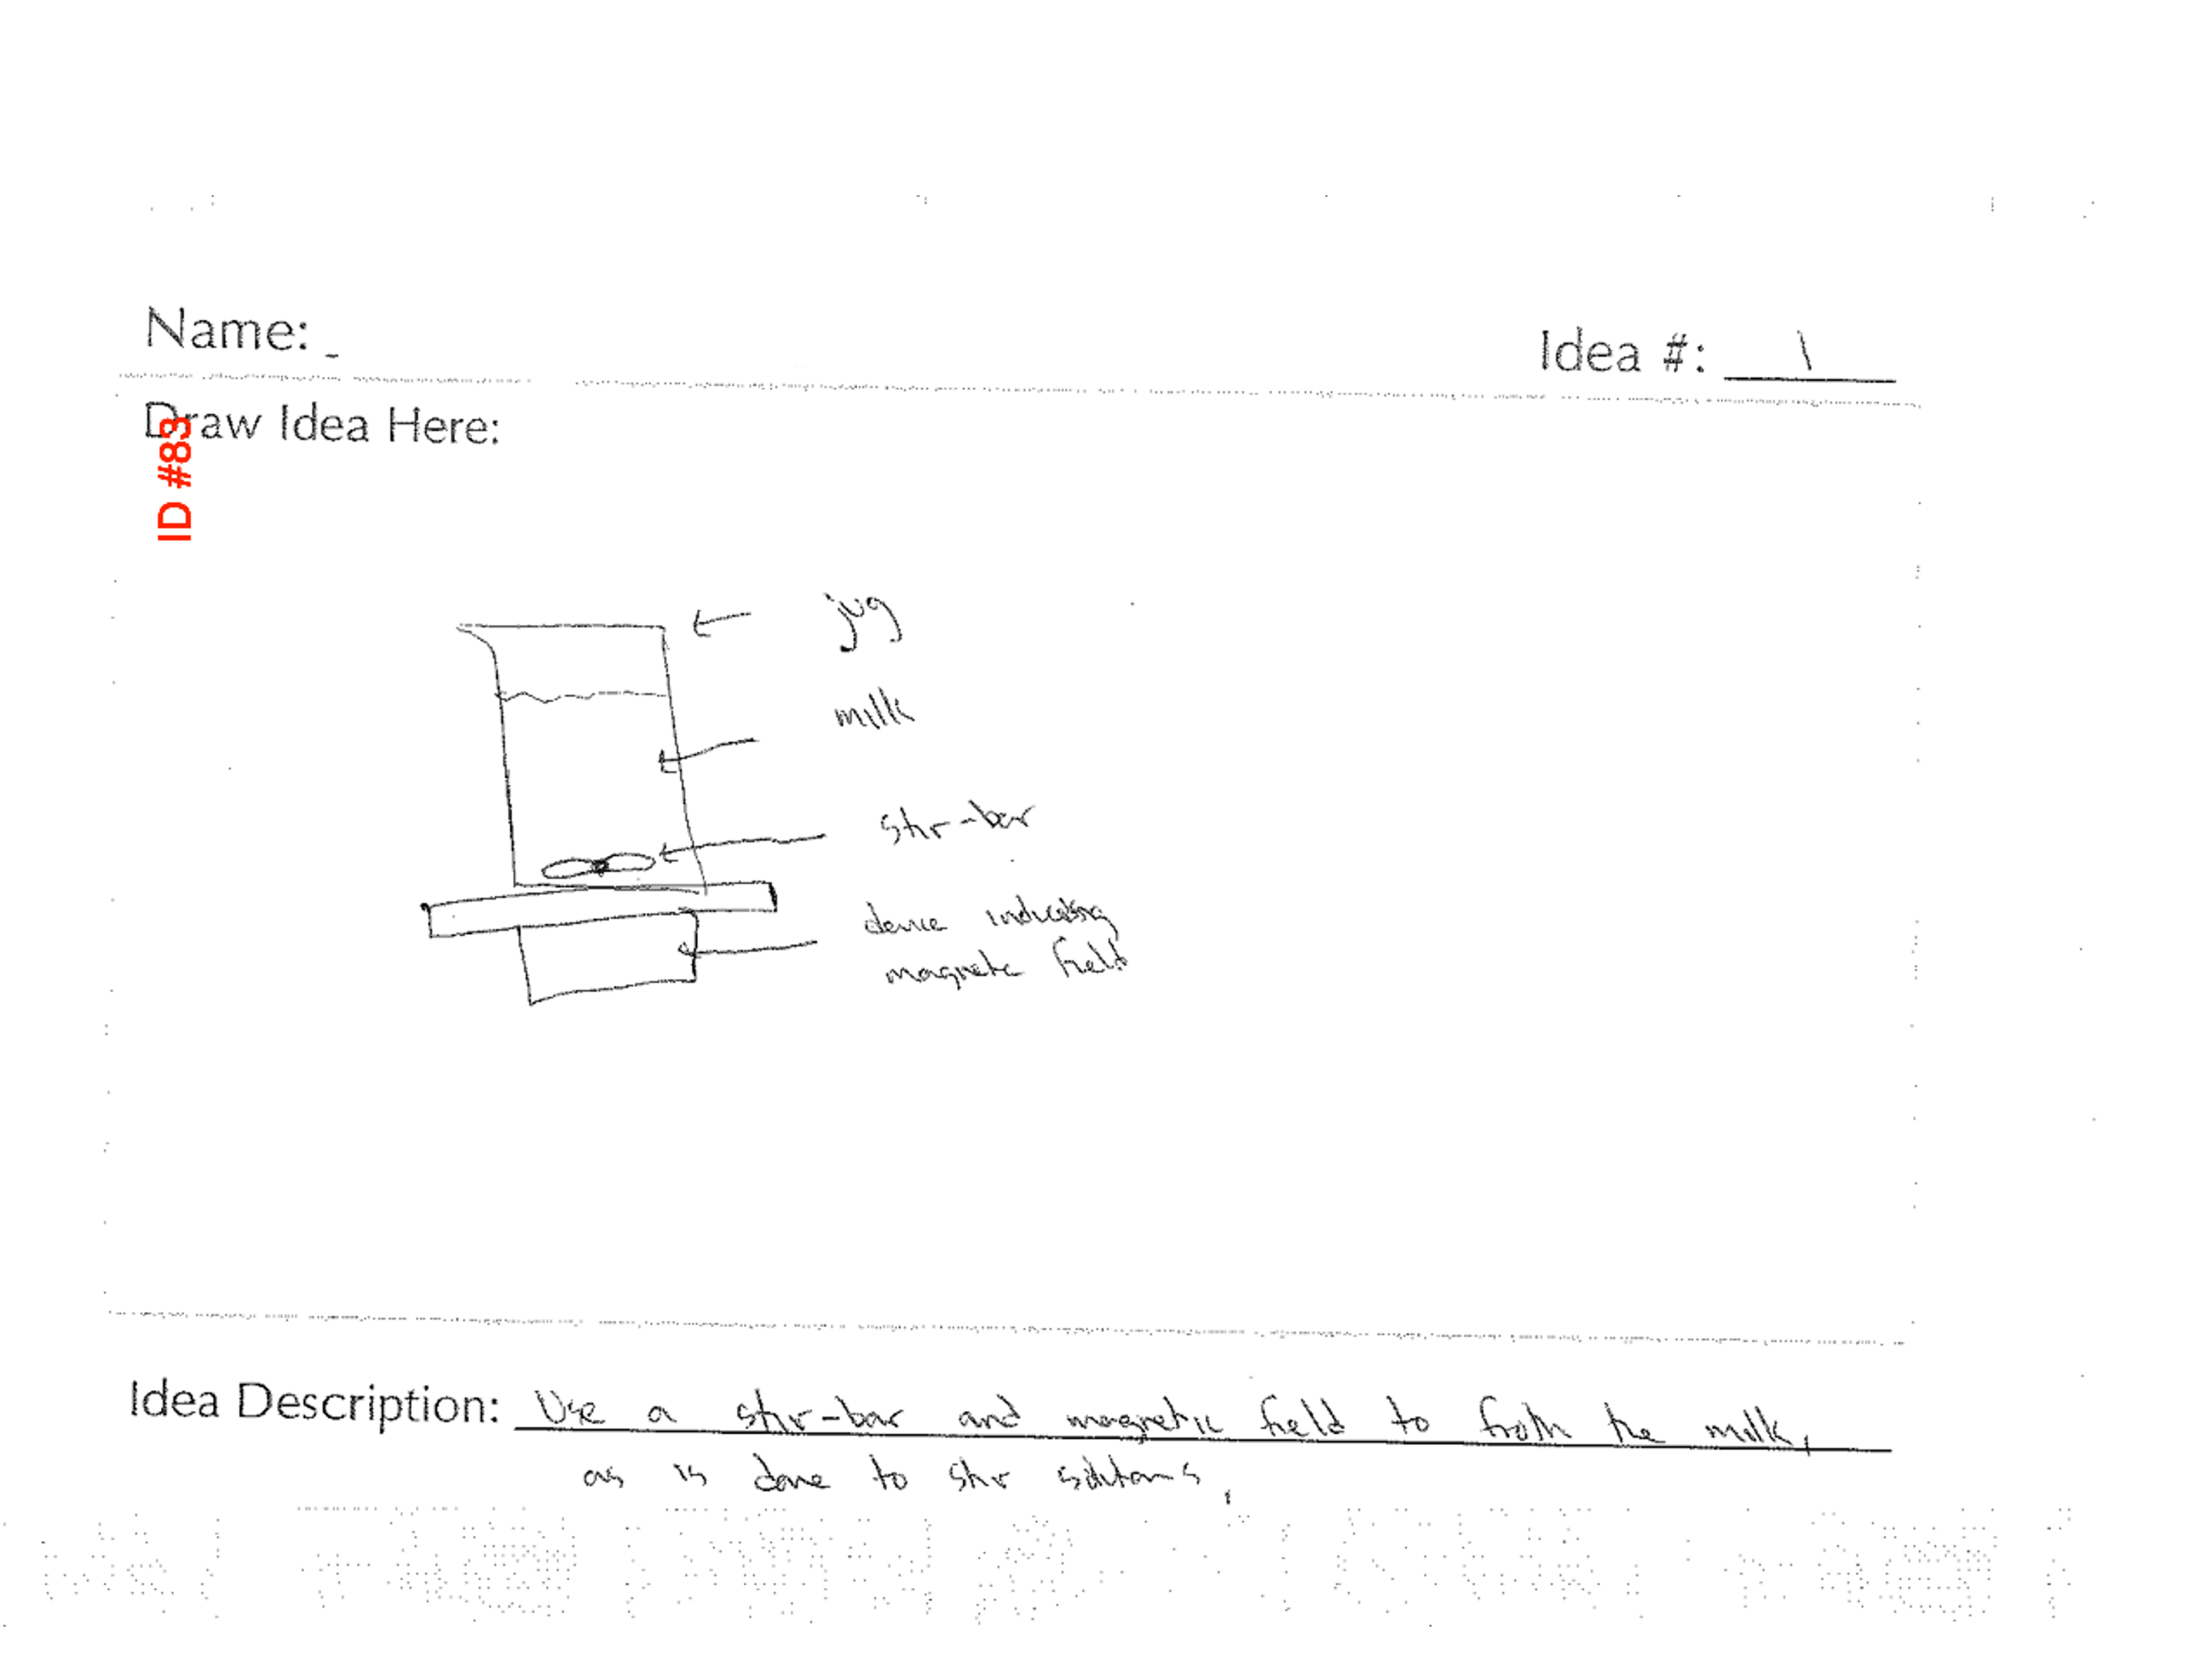 Name:
Idea #: 1
Draw Idea Here:
ID #83
jug
milk
stir-bar
device inducating
magnetic field
Idea Description: Use a stir-bar and magnetic field to froth the milk,
as is done to stir solutions.